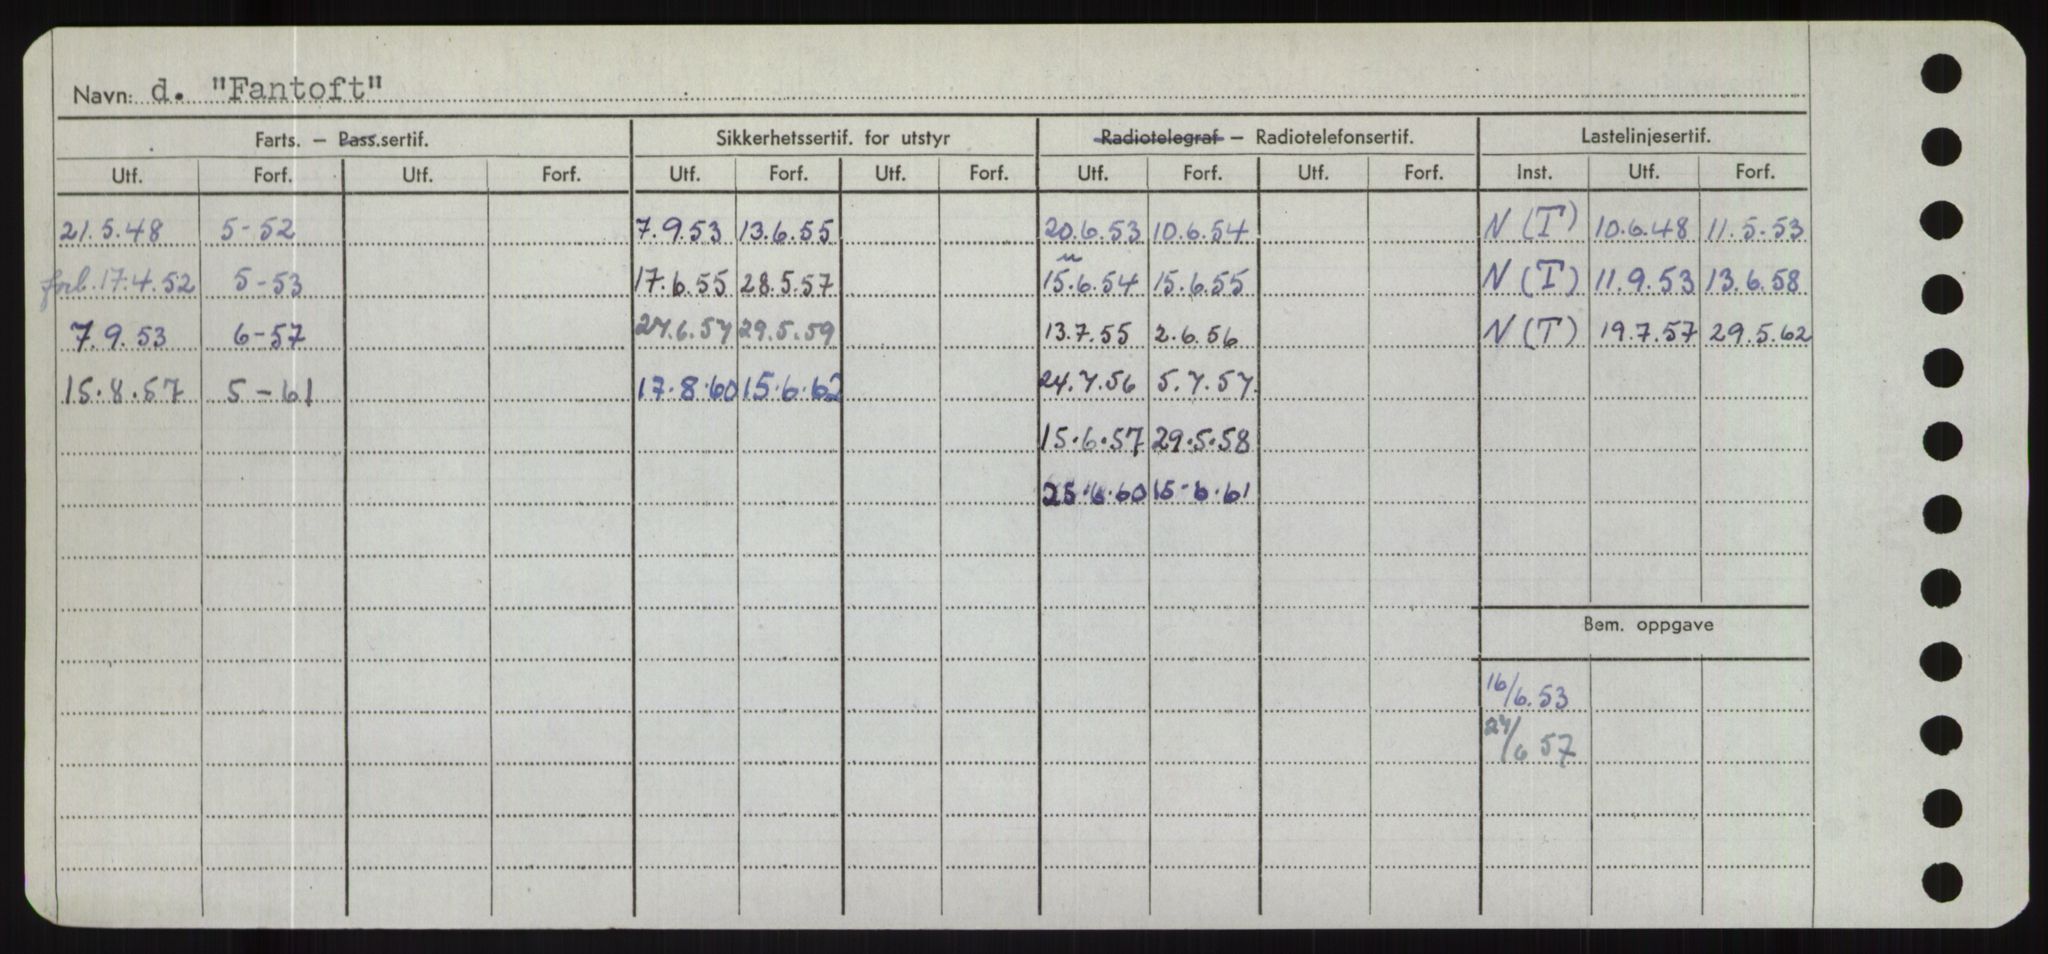 Navn: d. "Fantoft"
Farts. — Pass.sertif. Sikkerhetssertif. for utstyr Radiotelegraf — Radiotelefonsertif. Lastelinjesertif.
Utf. Forf. Utf. Forf. Utf. Forf. Utf. Forf. Utf. Forf. Utf. Forf. Inst. Utf. Forf.
21.5.48 5-52 7.9.53 13.6.55 20.6.53 10.6.54 N(T) 10.6.48 11.5.53
forl. 17.4.52 5-53 17.6.55 28.5.57 15.6.54 15.6.55 N(T) 11.9.53 13.6.58
7.9.53 6-57 27.6.57 29.5.59 13.7.55 2.6.56 N(T) 19.7.57 29.5.62
15.8.57 5-61 17.8.60 15.6.62 24.7.56 5.7.57.
15.6.57 29.5.58
25.6.60 15-6.61
Bem. oppgave
16/6.53
27/6 57